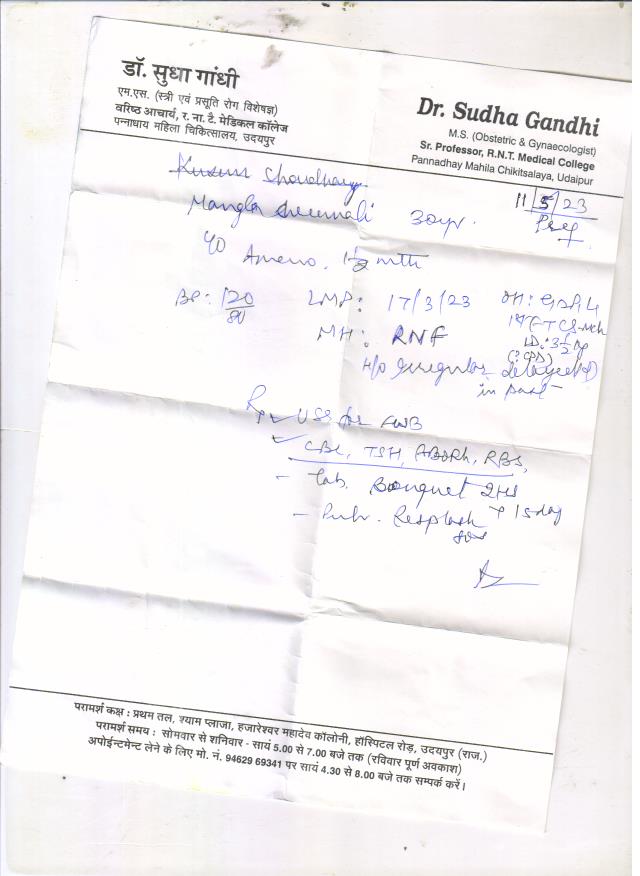 डॉ. सुधा गांधी
एम.एस. (स्त्री एवं प्रसूति रोग विशेषज्ञ)
वरिष्ठ आचार्य, र. ना. टै. मेडिकल कॉलेज
पन्नाधाय महिला चिकित्सालय, उदयपुर
Dr. Sudha Gandhi
M.S. (Obstetric & Gynaecologist)
Sr. Professor, R.N.T. Medical College
Pannadhay Mahila Chikitsalaya, Udaipur
Kusum Choudhary
11/5/23
Mangla 30yr.
Preg
Ameno. 1½ mth
BP: 120/80
LMP: 17/3/23
MH: RNF
H/o irregular delayed
in past
USG for FWB
CBC, TSH, ABORh, RBS,
- Tab. Bonquet 2HS
x 15day
- Resplash
sos
परामर्श कक्ष : प्रथम तल, श्याम प्लाजा, हजारेश्वर महादेव कॉलोनी, हॉस्पिटल रोड़, उदयपुर (राज.)
परामर्श समय : सोमवार से शनिवार - सायं 5.00 से 7.00 बजे तक (रविवार पूर्ण अवकाश)
अपोईन्टमेन्ट लेने के लिए मो. नं. 94629 69341 पर सायं 4.30 से 8.00 बजे तक सम्पर्क करें।